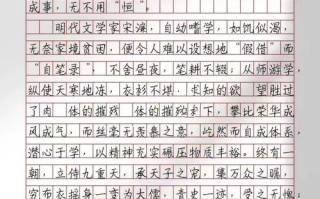 成事，无不用“恒”。
明代文学家宋濂，自幼嗜学，如饥似渴，
无奈家境贫困，便令人难以设想地“假借”而
“自笔录”；不舍昼夜，笔耕不辍；从师游学，
纵使天寒地冻，衣衫不堪，求知的欲望胜过
了肉体的摧残 体的摧残 ，攀比荣华成
风成气，而丝毫无羡慕之意，屹然而自成体系，
潜心于学，以精神充实碾压物质丰裕。终有一
朝，立侍九重天，承天子之宠，集万众之瞩，
穷布衣摇身一变为大儒，青史一迹，受之无愧